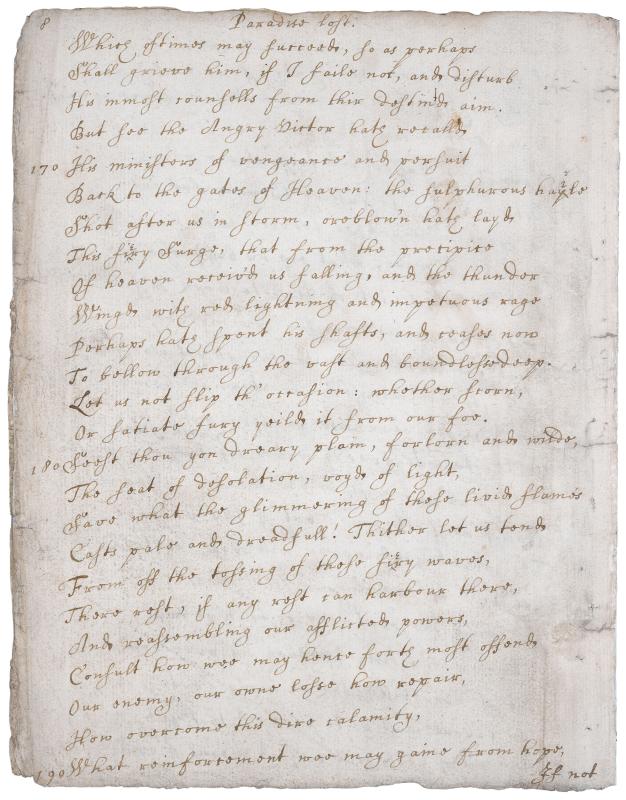 8 Paradise lost.
Which oftimes may succeed, so as perhaps
Shall grieve him, if I faile not, and disturb
His inmost counsells from thir destin'd aim.
But see the Angry Victor hath recalld
170 His ministers of vengeance and persuit
Back to the gates of Heaven: the sulphurous hayle
Shot after us in storm, oreblown hath layd
This firy Surge, that from the precipice
Of heaven receiv'd us falling, and the thunder
Wingd with red lightning and impetuous rage
Perhaps hath spent his shafts, and ceases now
To bellow through the vast and boundlesse deep.
Let us not slip th' occasion: whether scorn,
Or satiate fury yeild it from our foe.
180 Seest thou yon dreary plain, forlorn and wilde,
The seat of desolation, voyd of light,
Save what the glimmering of these livid flames
Casts pale and dreadfull! Thither let us tend
From off the tossing of these firy waves,
There rest, if any rest can harbour there,
And reassembling our afflicted powers,
Consult how wee may hence forth most offend
Our enemy, our owne losse how repair,
How overcome this dire calamity,
190 What reinforcement wee may gaine from hope,
If not